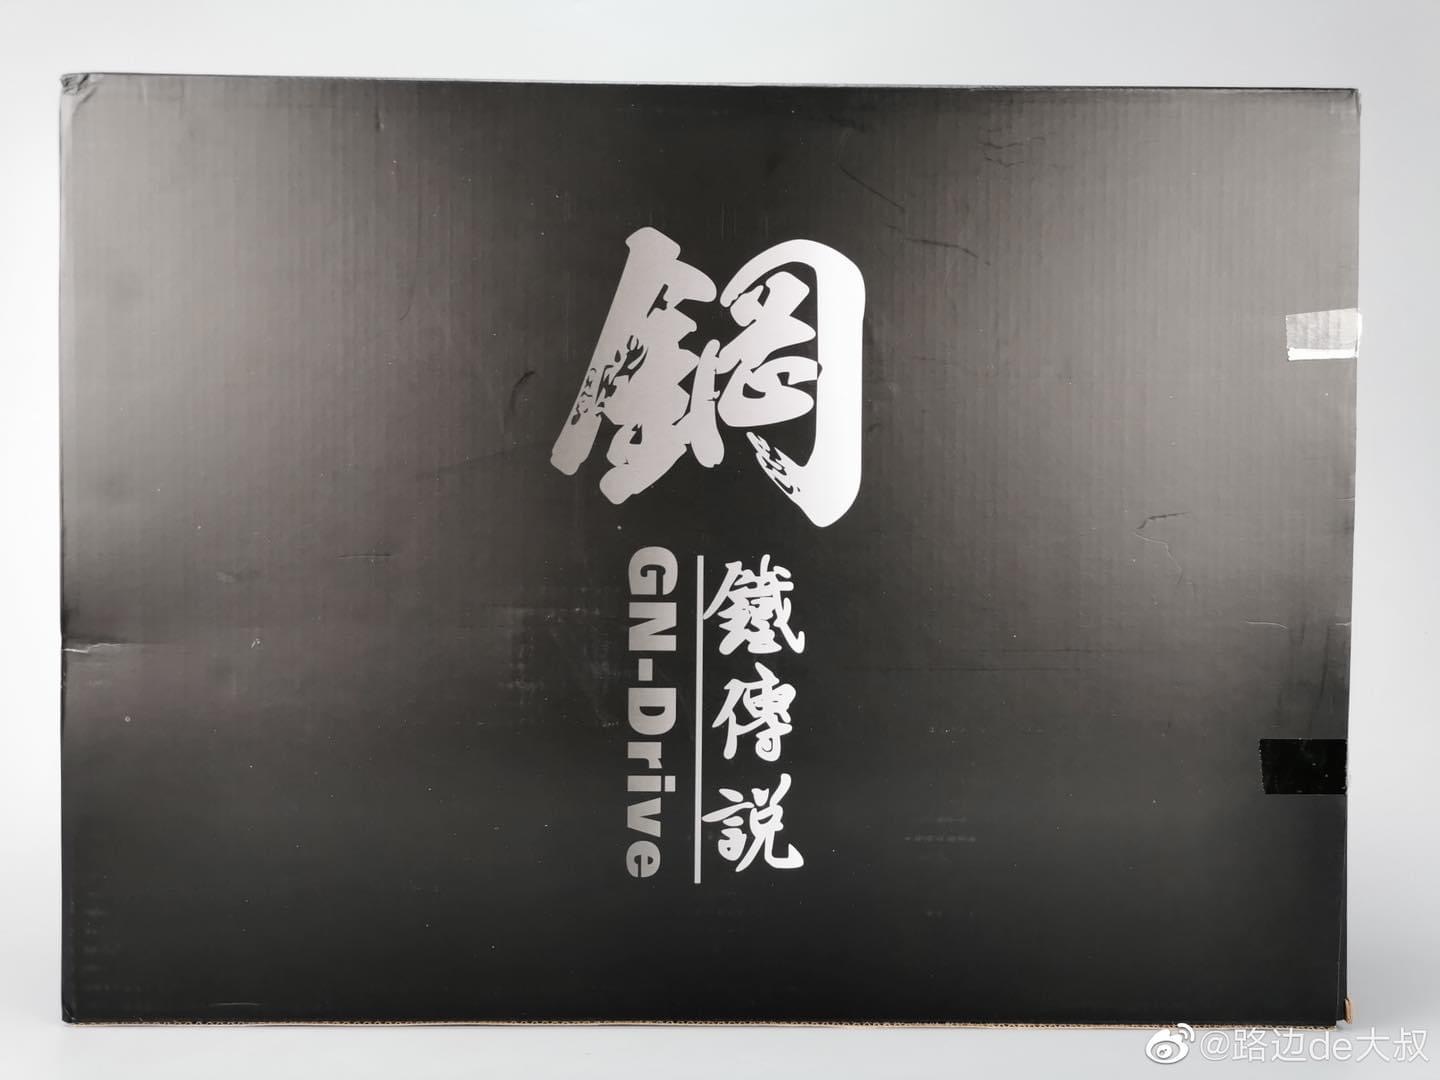 鋼
鐵傳説
GN-Drive
@路边de大叔